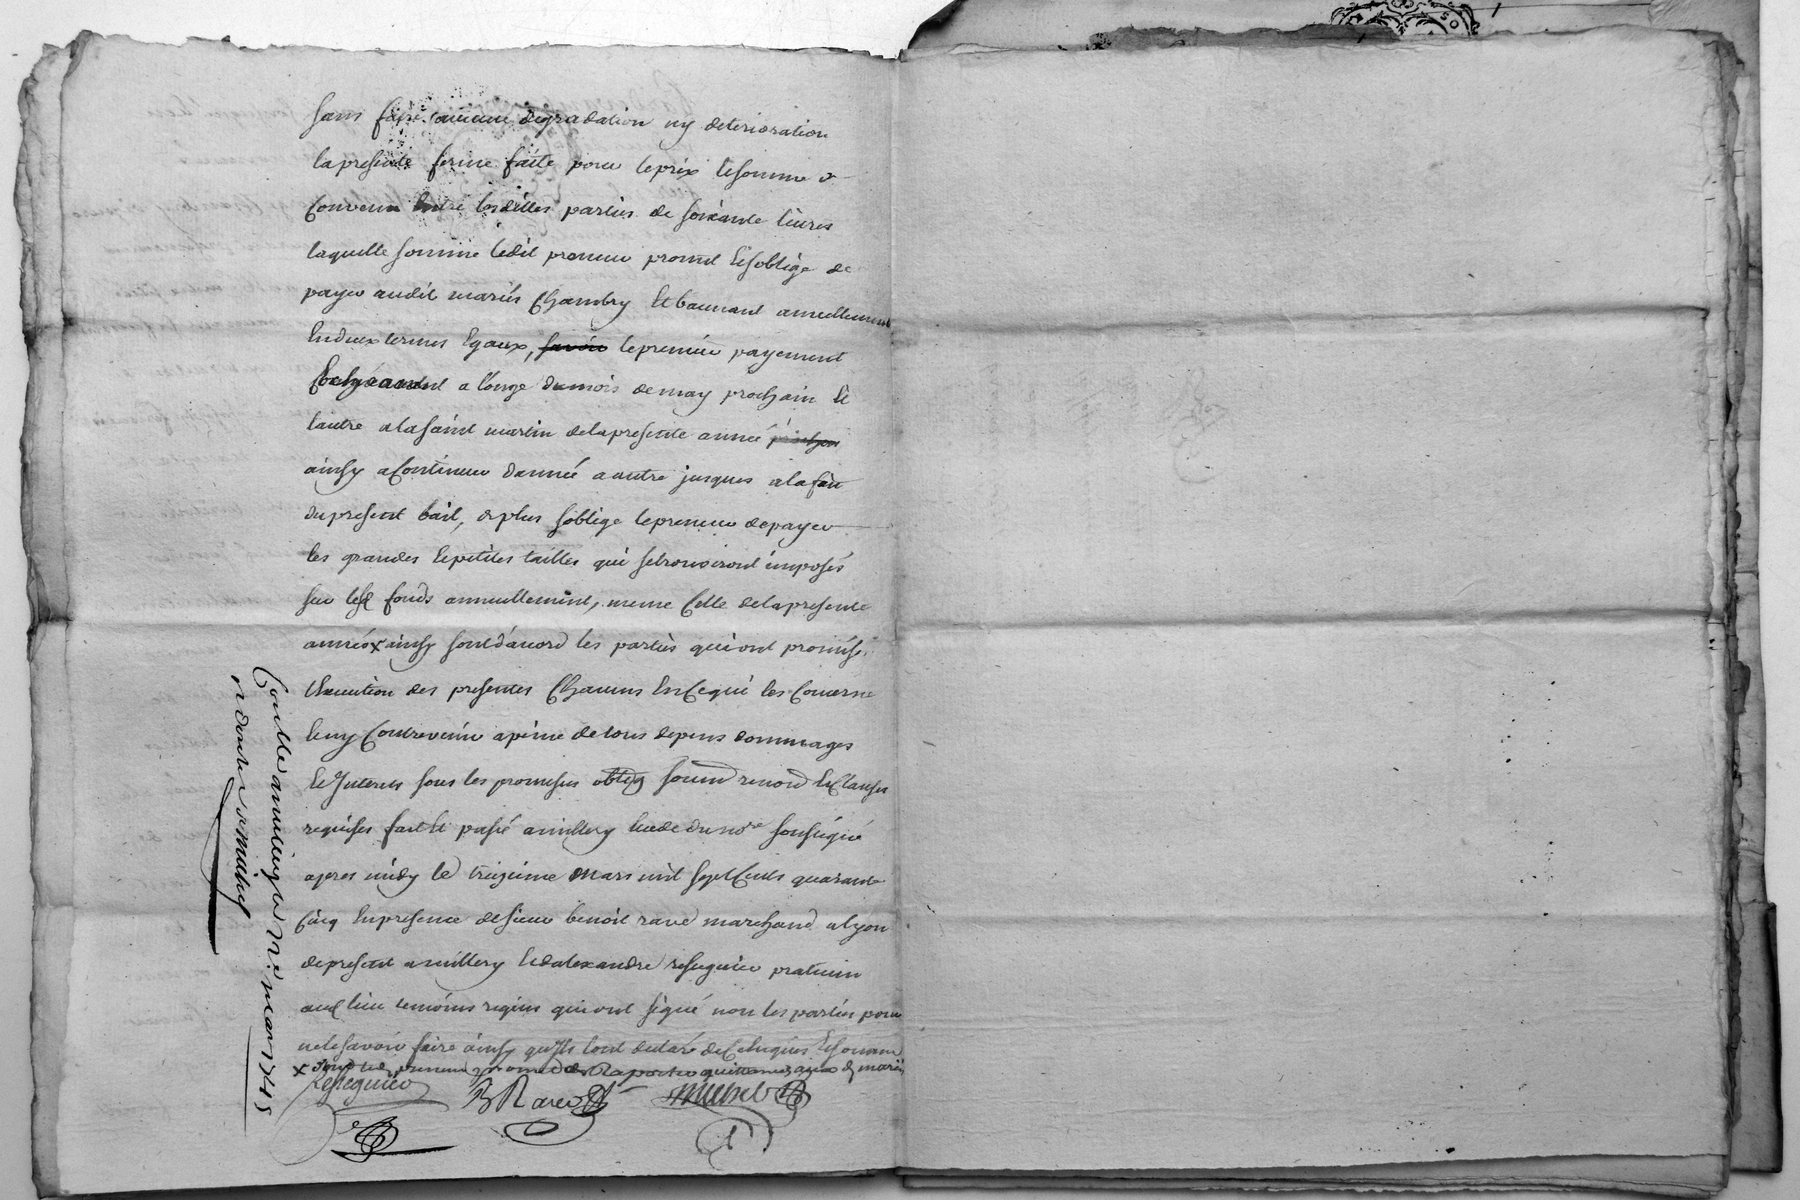 sans faire aucune degradation ny deterioration
la presente ferme faite pour le prix et somme
convenu entre lesdittes parties de soixante livres
laquelle somme ledit preneur promet et soblige de
payer audit mariés Chambry et annuellement
en deux termes egaux, savoir le premier payement
a longe du mois de may prochain et
lautre a la saint martin de la presente année
ainsy a continuer dannée a autre jusques a la fin
du present bail, de plus soblige le preneur de payer
les grandes et petites tailles qui se trouveront imposés
sur lesd fonds annuellement, meme celle de la presente
année x ainsy sont dacord les parties qui ont promis
lexecution des presentes Chacuns en ce qui les concerne
et ny contrevenir a peine de tous depens dommages
et Interets sous les promesses oblig soum renon et Clauses
requises fait et passé a millery etude du nore soussigné
apres midy le treizieme mars mil sept Cents quarante
cinq en presence de sieur benoit rave marchand a lyon
de present a millery et dalexandre praticien
aud lieu temoins requis qui ont signé non les parties pour
ne le savoir faire ainsy quils lont declaré de ce enquis et sommé
x promet de Raporter quittance aux d mariés
B Rave
Controlle a millery le mars 1745